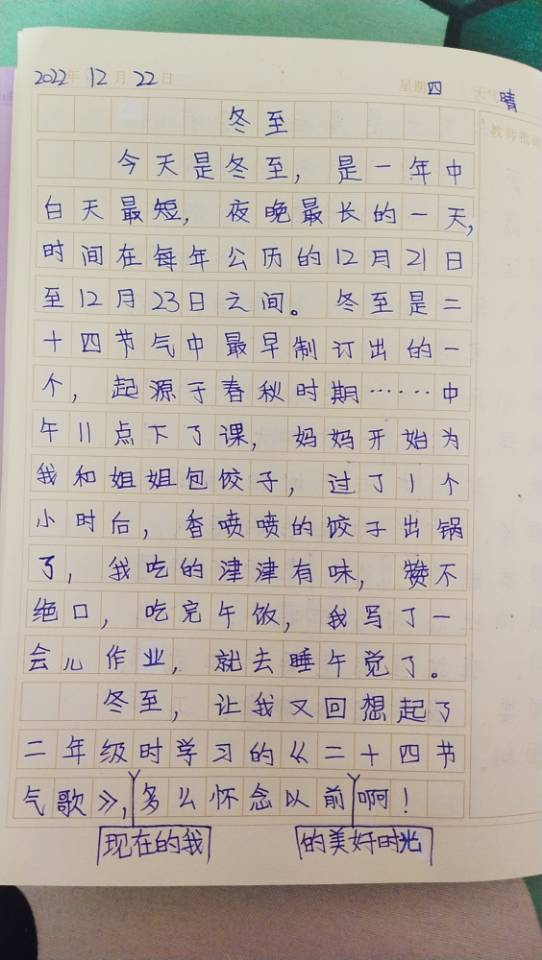 2022年 12月 22日 星期四 天气晴
教师批
冬至
今天是冬至，是一年中
白天最短，夜晚最长的一天，
时间在每年公历的12月21日
至12月23日之间。冬至是二
十四节气中最早制订出的一
个，起源于春秋时期……中
午11点下了课，妈妈开始为
我和姐姐包饺子，过了1个
小时后，香喷喷的饺子出锅
了，我吃的津津有味，赞不
绝口，吃完午饭，我写了一
会儿作业，就去睡午觉了。
冬至，让我又回想起了
二年级时学习的《二十四节
气歌》，多么怀念以前啊！
现在的我 的美好时光